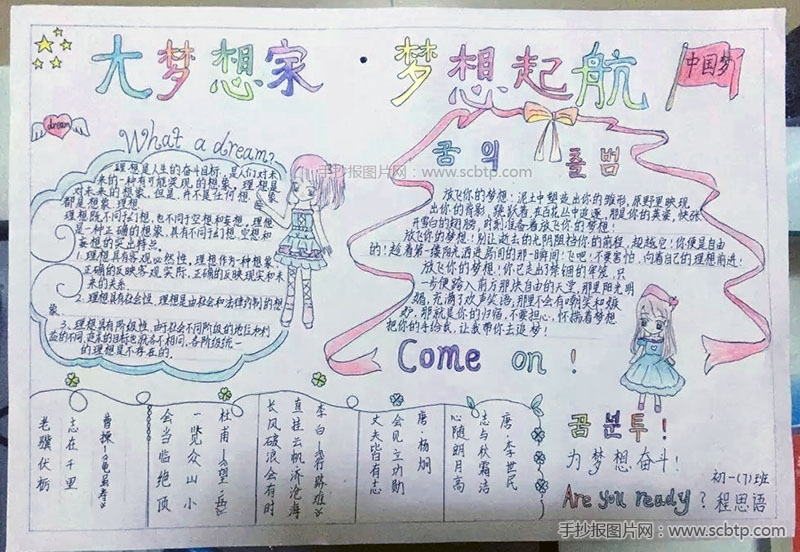 大梦想家·梦想起航
中国梦
dream
What a dream?
理想是人生的奋斗目标,是人们对未
来的一种有可能实现的想象,理想是
对未来的想象,但是,并不是任何想象
都是理想.
理想既不同于幻想,也不同于空想和妄想。理想
是一种正确的想象,具有不同于幻想,空想和
妄想的突出特点。
1.理想具有客观必然性,理想作为一种想象,
正确的反映客观实际,正确的反映现实和未
来的关系.
2.理想具有社会性,理想是由社会和法律约制的想
象.
3、理想具有阶级性,由于社会不同阶段的地位和利
益的不同,追求的目标也就各不相同,各阶级统一
的理想是不存在的.
꿈의 출범
放飞你的梦想:泥土中塑造出你的雏形,原野里映现
出你的背影,跳跃着,在百花丛中追逐,那是你的英姿,快张
开雪白的翅膀,时刻准备着放飞你的梦想!
放飞你的梦想!别让逝去的光阴阻挡你的前程,超越它!你便是自由
的!趁着第一缕阳光洒进房间的那一瞬间!飞吧!不要害怕,向着自己的理想前进!
放飞你的梦想!你已走出了禁锢的牢笼,只
一步便踏入前方那块自由的天堂,那里阳光明
媚,充满了欢声笑语,那里不会有嘲笑和嫉
妒,那就是你的归宿,不要担心,怀揣着梦想
把你的手给我,让我带你去追梦!
Come on!
老骥伏枥
志在千里
曹操—《龟虽寿》
会当临绝顶
一览众山小
杜甫—《望岳》
长风破浪会有时
直挂云帆济沧海
李白—《行路难》
丈夫皆有志
会见立功勋
唐·杨炯
心随朗月高
志与秋霜洁
唐·李世民
꿈분투!
为梦想奋斗!
Are you ready?
初一(7)班
程思语
手抄报图片网:www.scbtp.com
手抄报图片网:www.scbtp.com